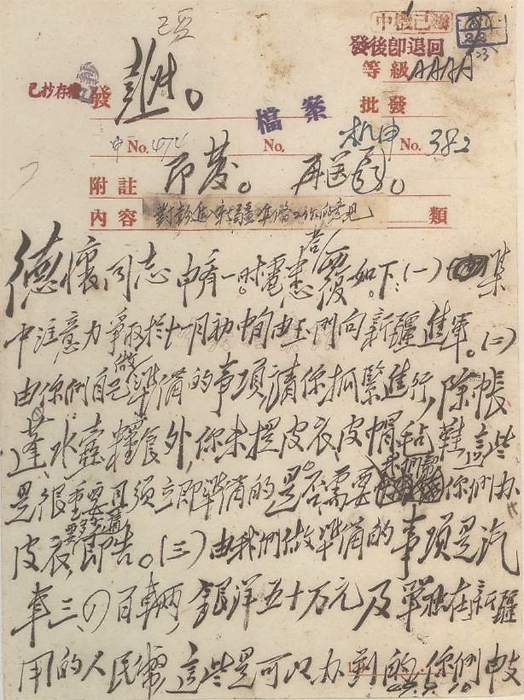 中機已辦
發後卽退回
等級 AAAA
已抄存檔
發 彭
檔案
批發
申 No. 474 No. 机申 No. 382
附註 再送
內容 類
德懷同志申有一時電悉。答覆如下：(一)集
中注意力爭取於十一月初由玉門向新疆進軍。(二)
由你們自己做準備的事項請你抓緊進行，除帳
蓬水壺糧食外，你未提皮衣皮帽毡鞋這些
是很重要且須立即準備的是否需要 你們办
皮衣 即告。(三)由我們做準備的事項是汽
車三、四百輛，銀洋五十万元及單独在新疆
用的人民幣，這些是可以办到的。你們申